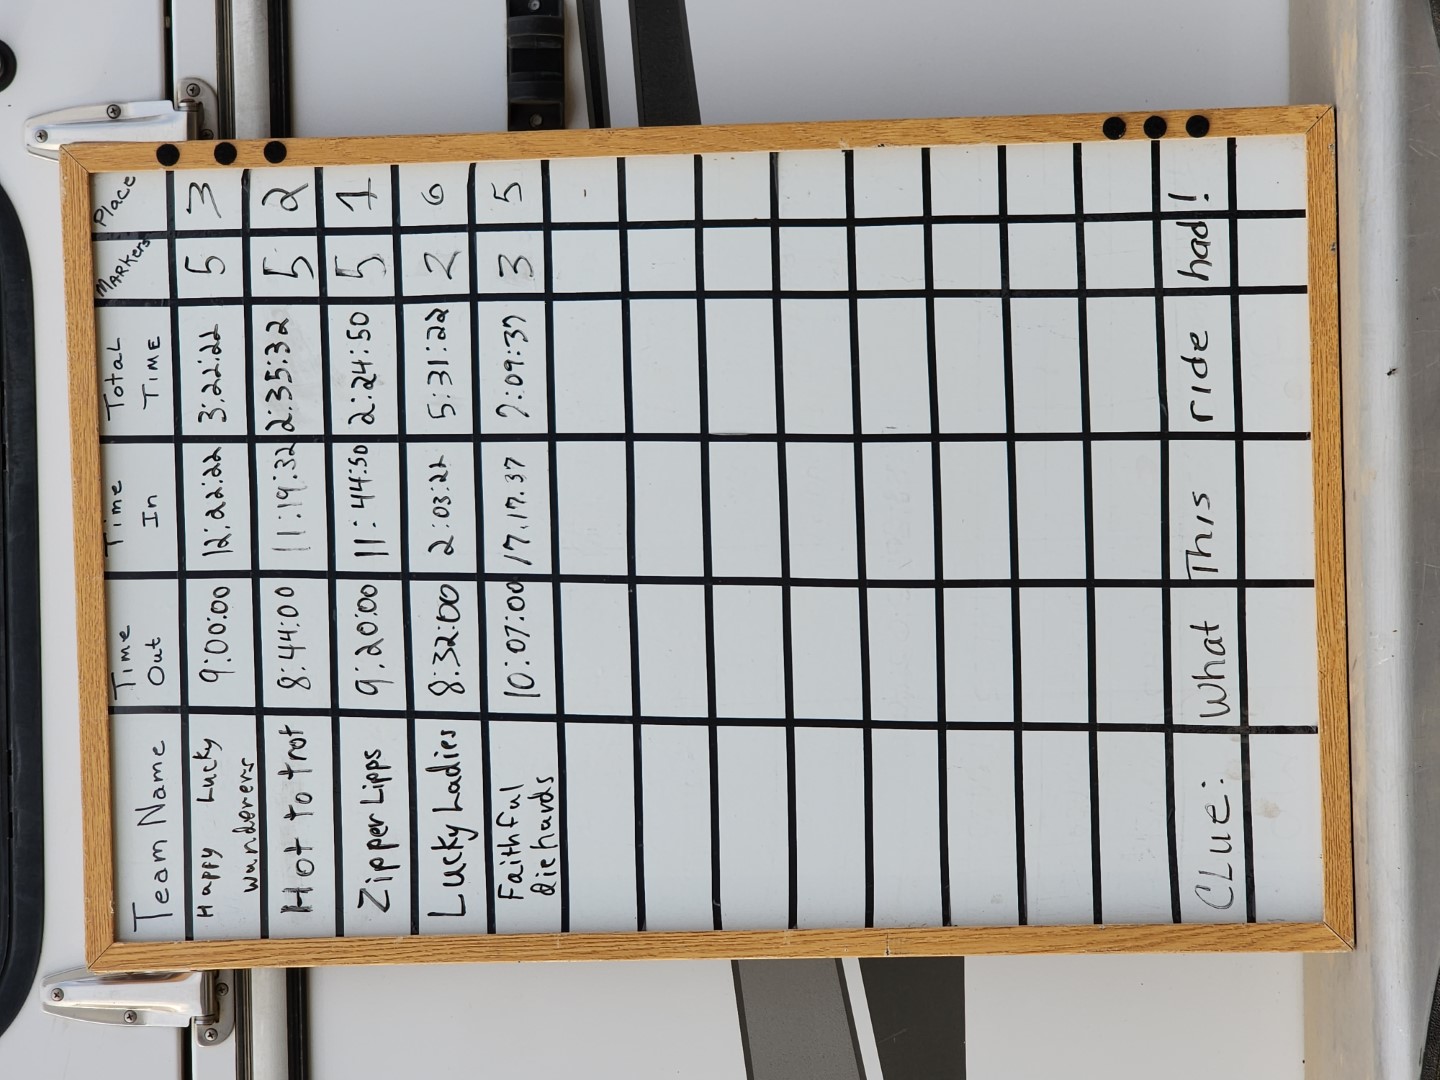 Team Name Time Out Time In Total TIME MARKers Place
Happy Lucky wunderers 9:00:00 12:22:22 3:22:22 5 3
Hot to trot 8:44:00 11:19:32 2:35:32 5 2
Zipper Lipps 9:20:00 11:44:50 2:24:50 5 1
Lucky Ladies 8:32:00 2:03:22 5:31:22 2 6
Faithful diehards 10:07:00 17.17.37 7:09:37 3 5
CLue: What This ride had!